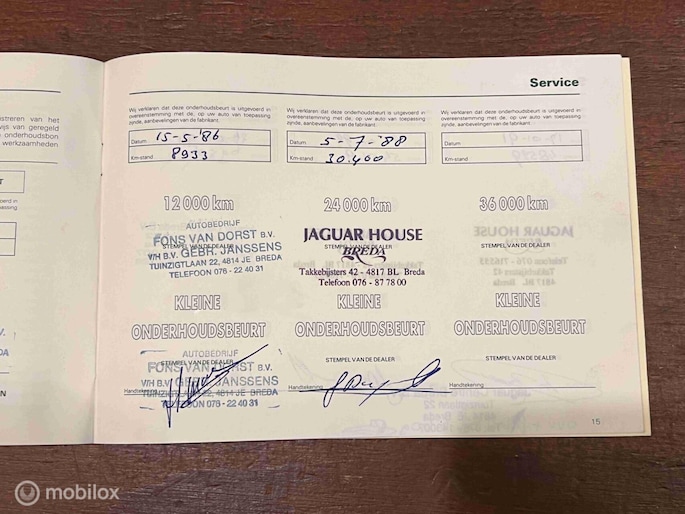 Service
streren van het
wijs van geregeld
onderhoudsbon
werkzaamheden
Wij verklaren dat deze onderhoudsbeurt is uitgevoerd in
overeenstemming met de, op uw auto van toepassing
zijnde, aanbevelingen van de fabrikant.
Datum 15-5-'86
Km-stand 8933
12 000 km
AUTOBEDRIJF
FONS VAN DORST B.V.
STEMPEL VAN DE DEALER
V/H B.V. GEBR. JANSSENS
TUINZIGTLAAN 22, 4814 JE BREDA
TELEFOON 076 - 22 40 31
KLEINE
ONDERHOUDSBEURT
AUTOBEDRIJF
FONS VAN DORST B.V.
STEMPEL VAN DE DEALER
V/H B.V. GEBR. JANSSENS
Handtekening
TUINZIGTLAAN 22, 4814 JE BREDA
TELEFOON 076 - 22 40 31
Wij verklaren dat deze onderhoudsbeurt is uitgevoerd in
overeenstemming met de, op uw auto van toepassing
zijnde, aanbevelingen van de fabrikant.
Datum 5-7-'88
Km-stand 30.400
24 000 km
JAGUAR HOUSE
STEMPEL VAN DE DEALER
BREDA
Takkebijsters 42 - 4817 BL Breda
Telefoon 076 - 87 78 00
KLEINE
ONDERHOUDSBEURT
STEMPEL VAN DE DEALER
Handtekening
Wij verklaren dat deze onderhoudsbeurt is uitgevoerd in
overeenstemming met de, op uw auto van toepassing
zijnde, aanbevelingen van de fabrikant.
Datum
Km-stand
36 000 km
STEMPEL VAN DE DEALER
KLEINE
ONDERHOUDSBEURT
STEMPEL VAN DE DEALER
Handtekening
15
mobilox